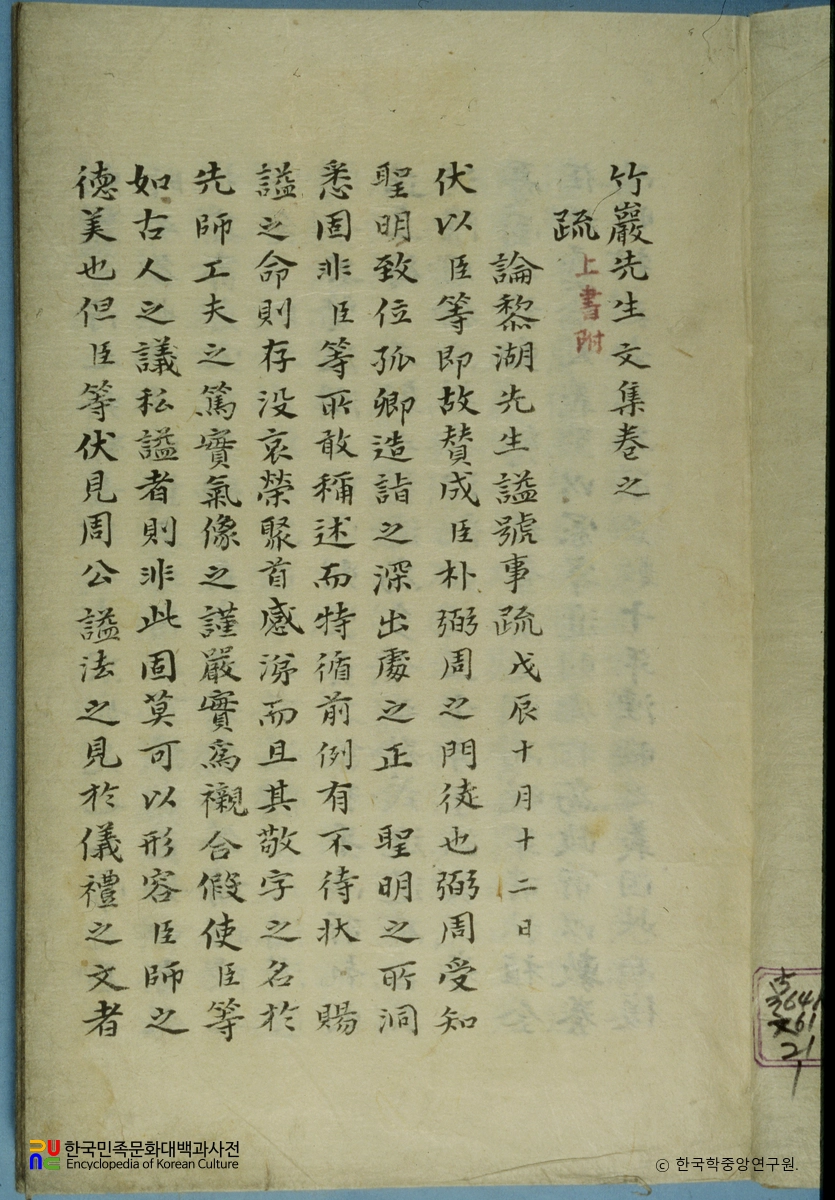 竹巖先生文集卷之
疏 上書附
論黎湖先生諡號事疏 戊辰十月十二日
伏以臣等即故贊成臣朴弼周之門徒也弼周受知
聖明致位孤卿造詣之深出處之正 聖明之所洞
悉固非臣等所敢稱述而特循前例有不待狀 賜
諡之命則存没哀榮聚首感涕而且其敬字之名於
先師工夫之篤實氣像之謹嚴實爲襯合假使臣等
如古人之議私諡者則非此固莫可以形容臣師之
德美也但臣等伏見周公諡法之見於儀禮之文者
古
3641
文61
21
1
한국민족문화대백과사전
Encyclopedia of Korean Culture
ⓒ 한국학중앙연구원.